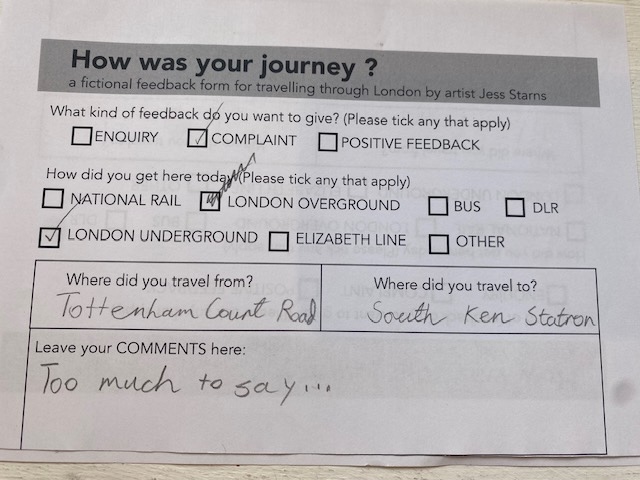 How was your journey ?
a fictional feedback form for travelling through London by artist Jess Starns
What kind of feedback do you want to give? (Please tick any that apply)
ENQUIRY COMPLAINT POSITIVE FEEDBACK
How did you get here today? (Please tick any that apply)
NATIONAL RAIL LONDON OVERGROUND BUS DLR
LONDON UNDERGROUND ELIZABETH LINE OTHER
Where did you travel from? Where did you travel to?
Tottenham Court Road South Ken Station
Leave your COMMENTS here:
Too much to say...